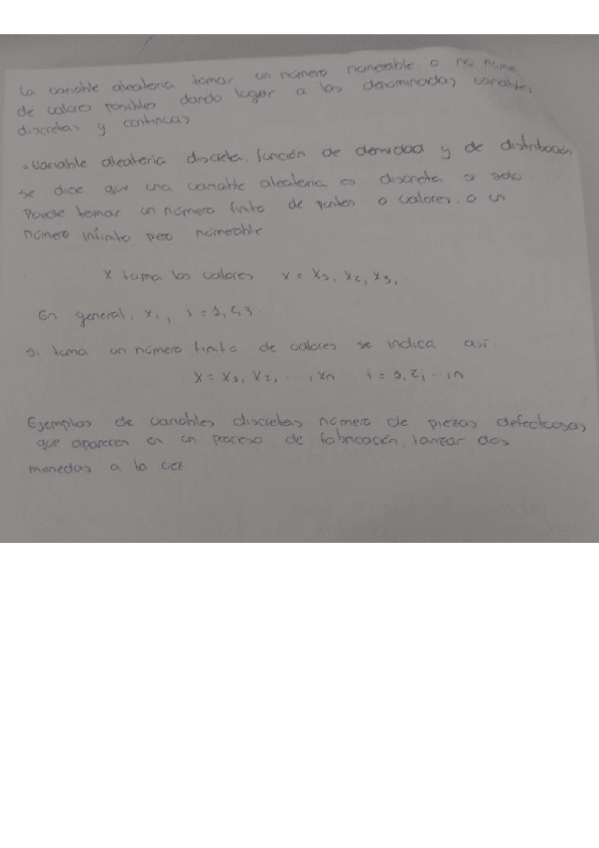 La variable aleatoria tomar un número numerable o no nume
de valores posibles dando lugar a las denominadas variables
discretas y continuas
• Variable aleatoria discreta. función de densidad y de distribución
se dice que una variable aleatoria es discreta si solo
Puede tomar un número finito de puntos o valores, o un
número infinito pero numerable
X toma los valores X = X1, X2, X3,
En general, Xi, i = 1, 2, 3
Si toma un número finito de valores se indica así
X = X1, X2, ..., Xn i = 1, 2, ..., n
Ejemplos de variables discretas número de piezas defectuosas
que aparecen en un proceso de fabricación, lanzar dos
monedas a la vez